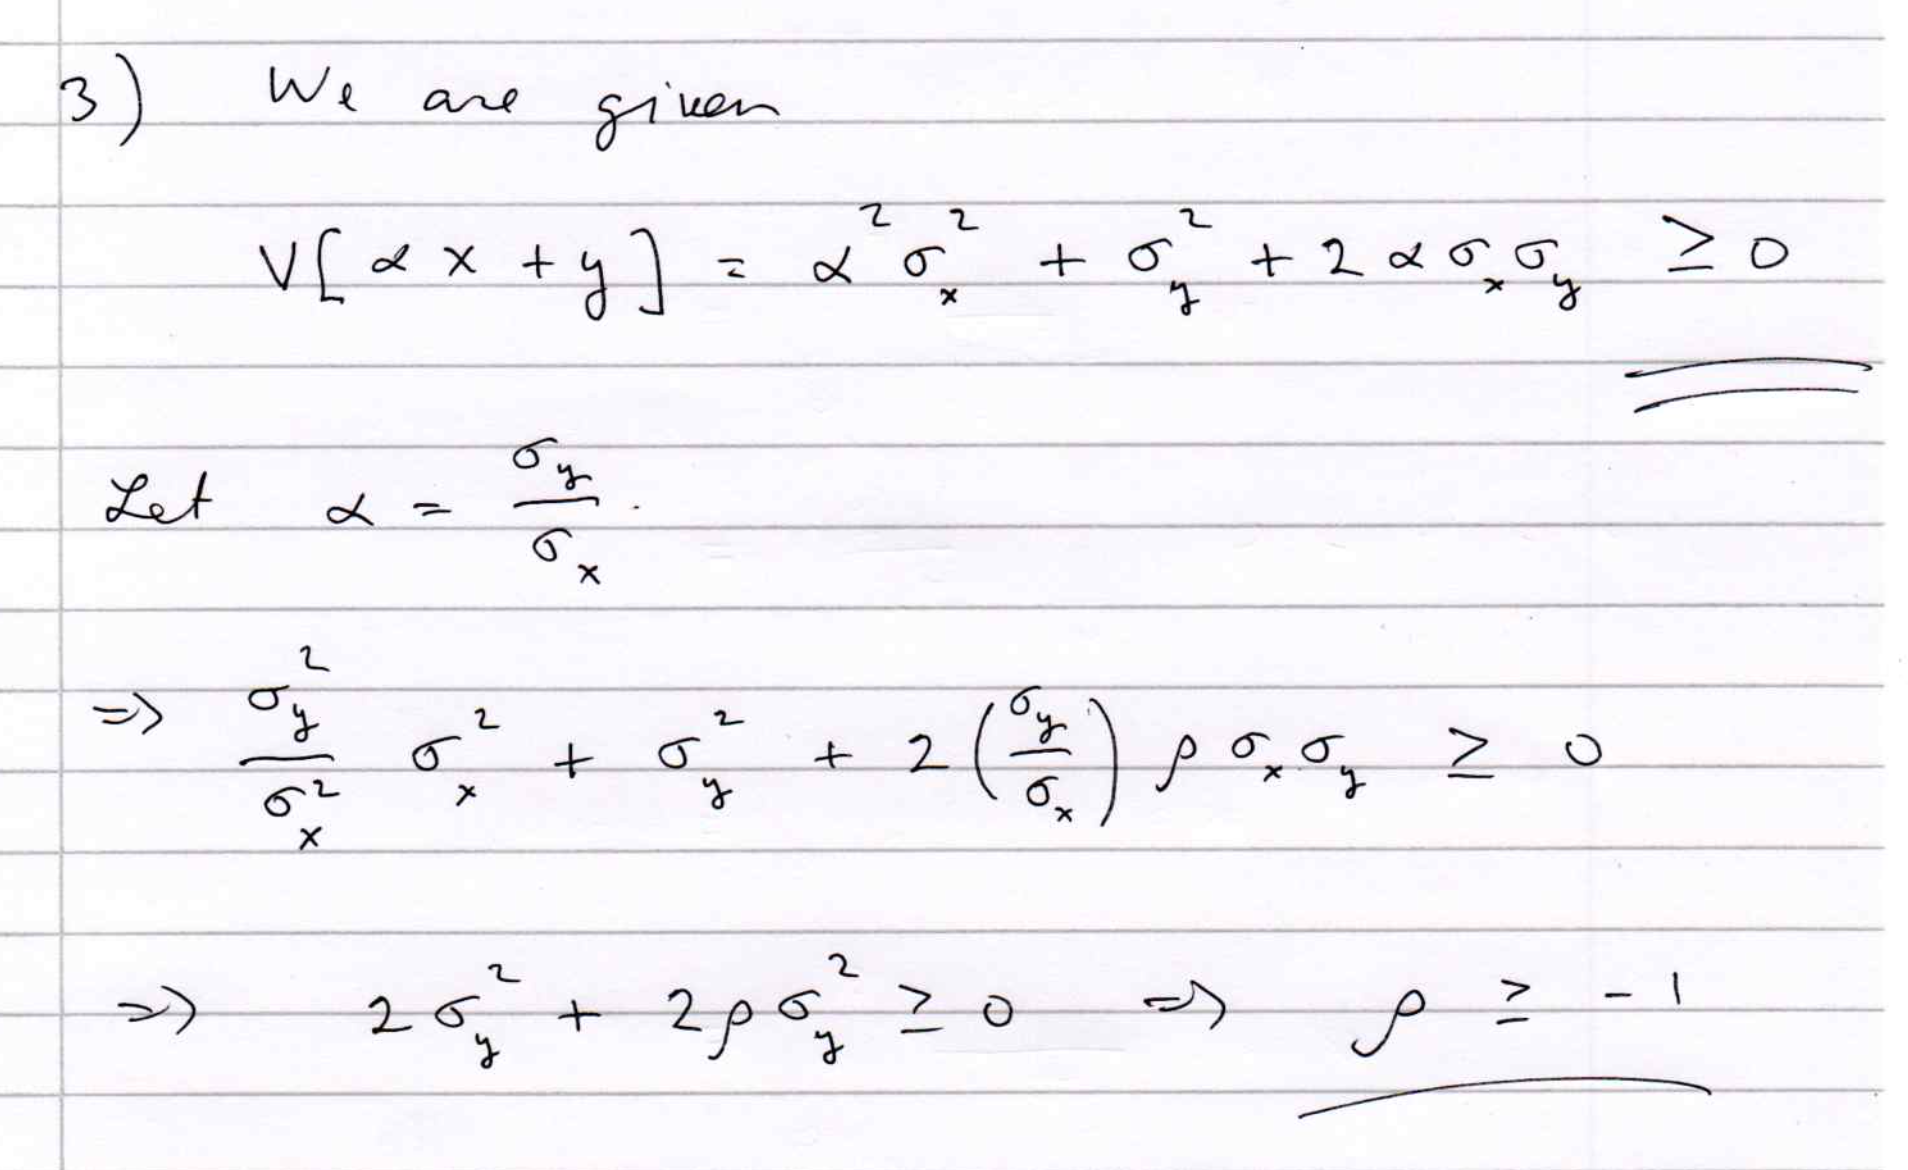 3) We are given
V[αx + y] = α²σₓ² + σ_y² + 2ασₓσ_y ≥ 0
Let α = σ_y / σₓ.
⇒ σ_y²/σₓ² σₓ² + σ_y² + 2(σ_y/σₓ) ρσₓσ_y ≥ 0
⇒ 2σ_y² + 2ρσ_y² ≥ 0 ⇒ ρ ≥ -1